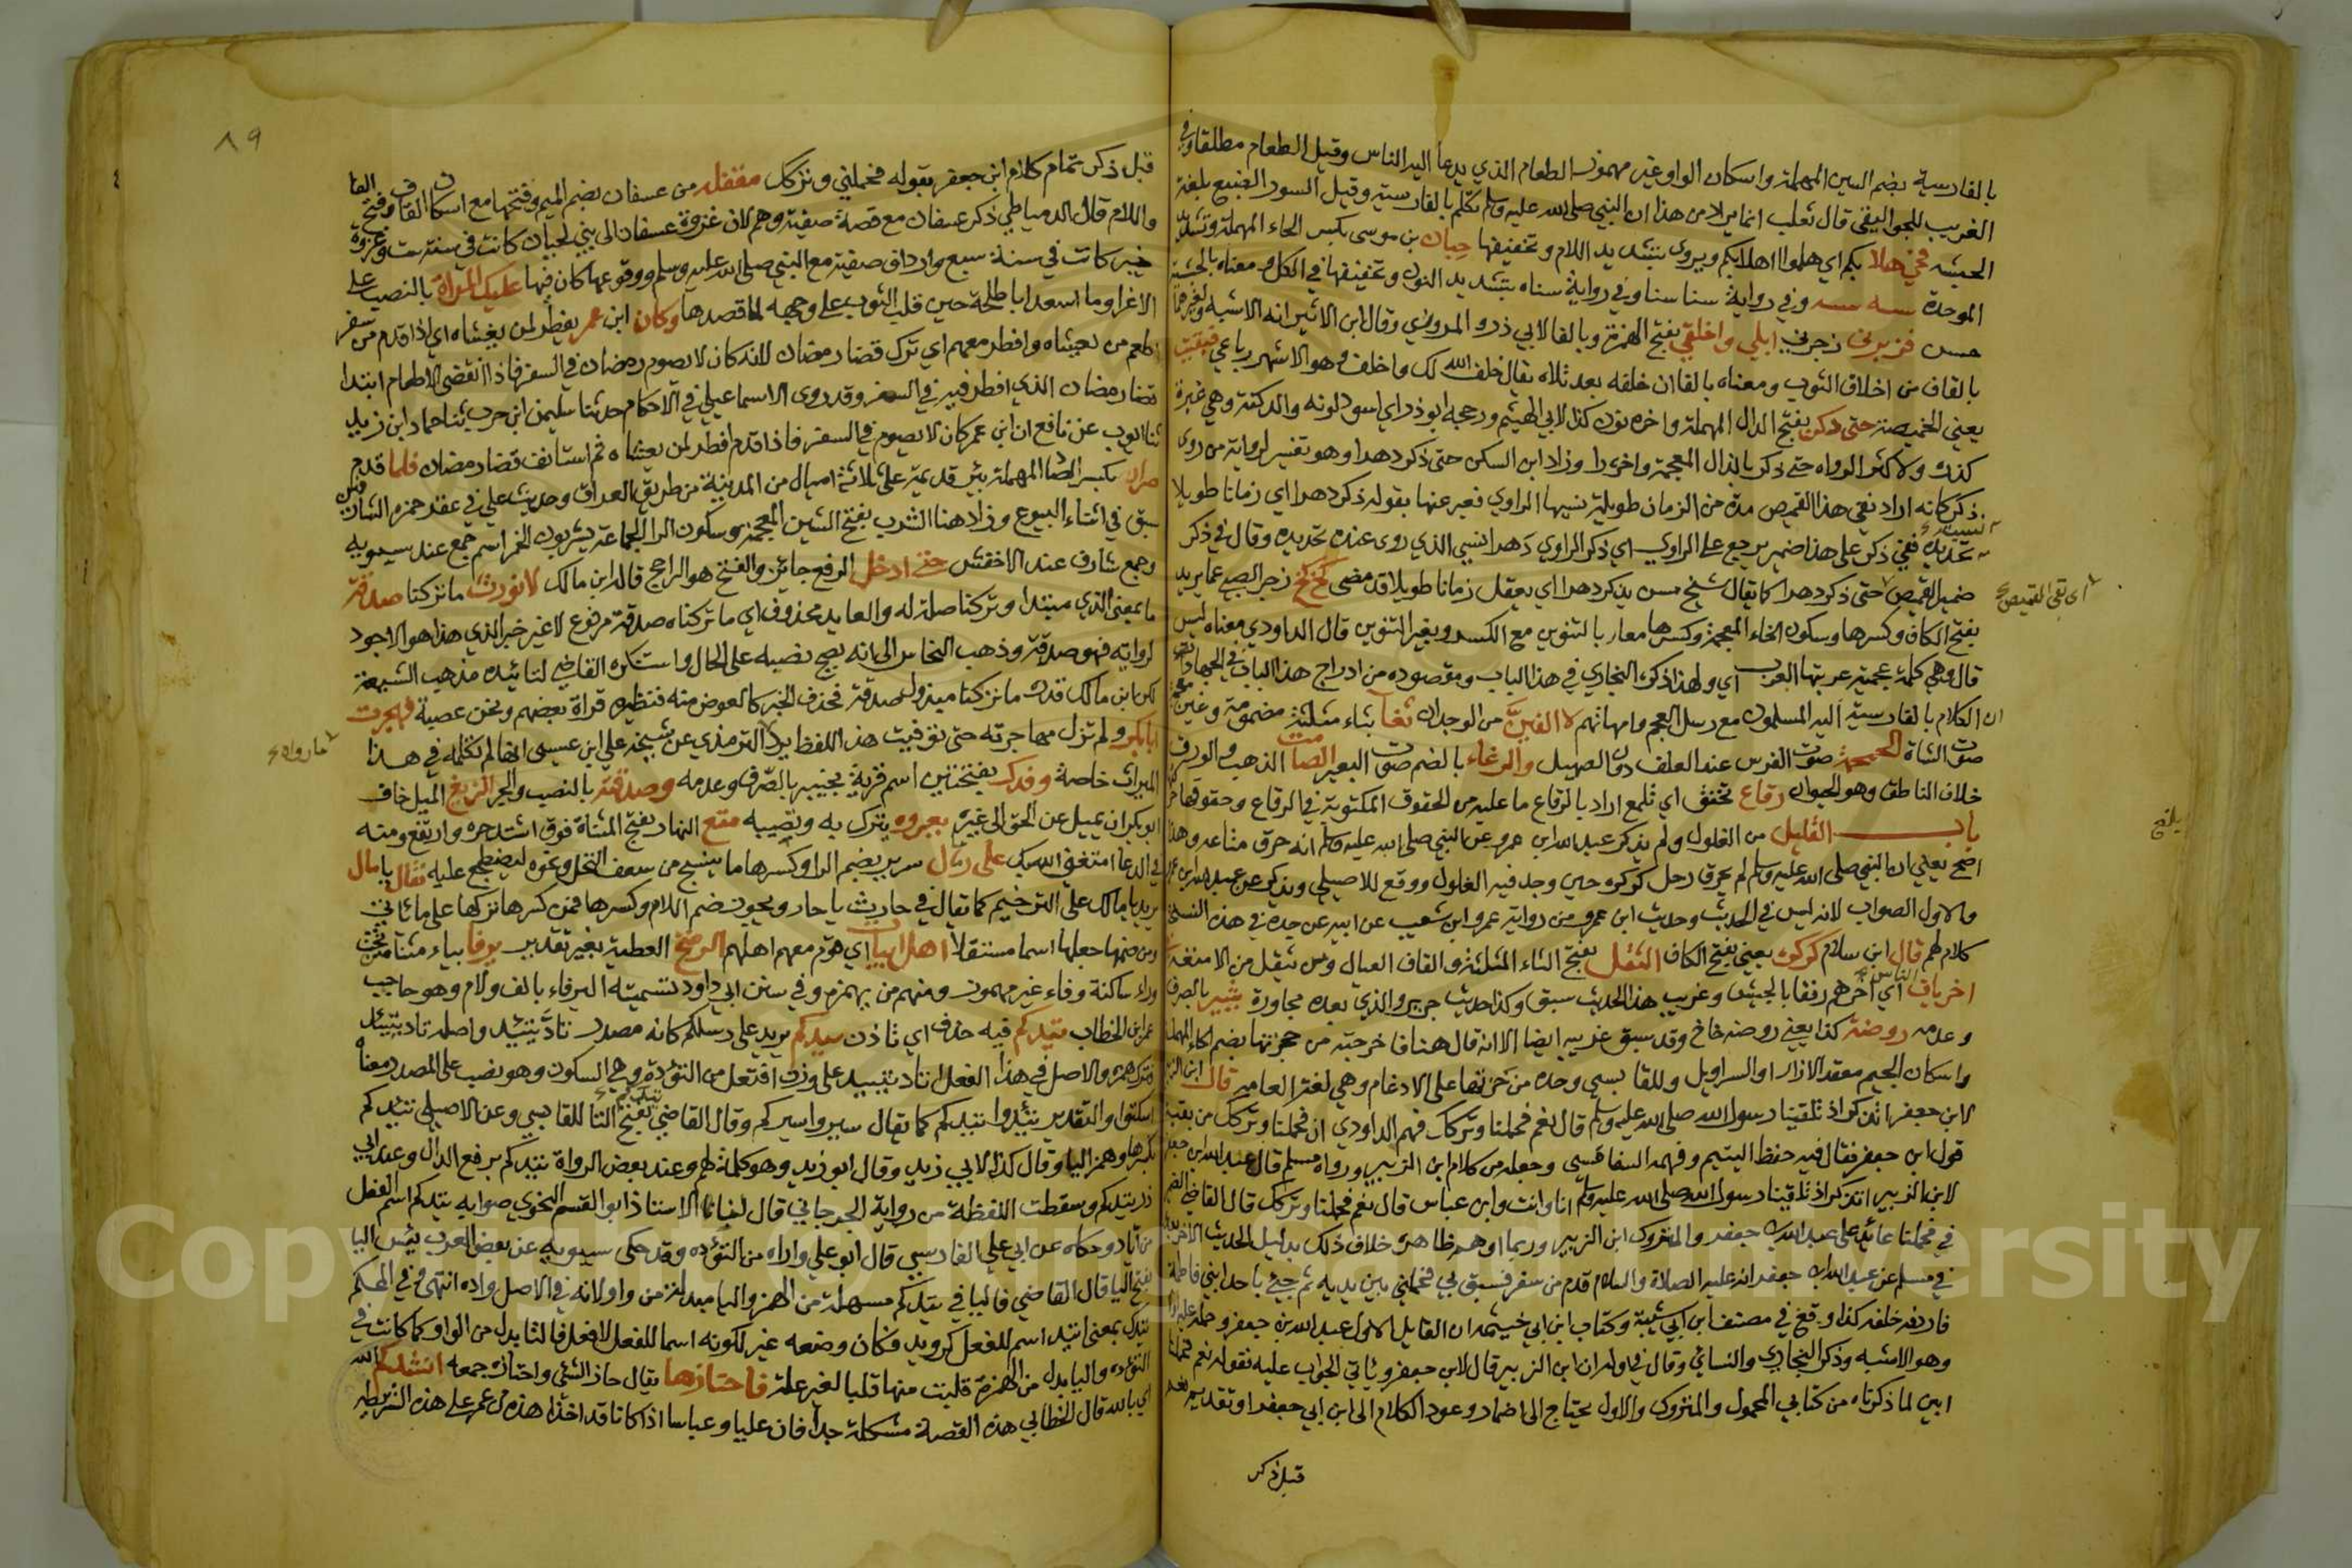 بالفارسية بضم السين المهملة واسكان الواو غير مهموز الطعام الذي يدعا اليه الناس وقيل الطعام مطلقا وفي
الغريب للجواليقي قال ثعلب انما يراد من هذا ان النبي صلى الله عليه وسلم تكلم بالفارسية وقيل السور الصنيع بلغة
الحبشه فحي هلا بكم اي هلموا اهلا بكم ويروى بتشديد اللام وتخفيفها حبان بن موسى بكسر الحاء المهملة وتشديد
الموحدة سنه سنه وفي رواية سنا سنا وفي رواية سناه بتشديد النون وتخفيفها في الكل ومعناه بالحبشية
حسن فزبرني زجرني ابلي واخلقي بفتح الهمزة وبالفا لابي ذر و المروزي وقال ابن الاثير انه الاشبه ولغيرهما
بالقاف من اخلاق الثوب ومعناه بالفا ان خلفه بعد ثلاه يقال خلف الله لك واخلف وهو الاشهر رباعي فبقيت
يعني الخميصة حتى دكن بفتح الدال المهملة واخره نون كذا لابي الهيثم ورجحه ابو ذر اي اسود لونه والدكنة وهي غبرة
كذلك ولاكثر الرواه حتى ذكر بالذال المعجمة واخره را وزاد ابن السكن حتى ذكر دهرا وهو تفسير لرواية من روى
ذكر كانه اراد بقي هذا القميص مدة من الزمان طويلة نسيها الراوي فعبر عنها بقوله ذكر دهرا اي زمانا طويلا
نسيت تحديده ففي ذكر على هذا ضمير يرجع على الراوي اي ذكر الراوي دهرا نسي الذي روى عنده تحديده وقال في ذكر
ضمير القميص حتى ذكر دهرا كما يقال شيخ مسن يذكر دهرا اي يعقل زمانا طويلا قد مضى كخ كخ زجر الصبي عما يريد
اي بقي القميص
بفتح الكاف وكسرها وسكون الخاء المعجمة وكسرها معا بالتنوين مع الكسر وبغير التنوين قال الداودي معناه ليس
قال وهي كلمة عجمية عربتها العرب اي ولهذا ذكره البخاري في هذا الباب ومقصوده من ادراج هذا الباب في الجهاد
ان الكلام بالفارسية اليه المسلمون مع رسل العجم وامهاتهم لا الفين من الوجدان ثغا بثاء مثلثة مضمومة وغين معجمة
صوت الشاة الحمحمة صوت الفرس عند العلف دون الصهيل والرغاء بالضم صوت البعير الصامت الذهب والورق
خلاف الناطق وهو الحيوان رقاع تخفق اي تلمع اراد بالرقاع ما عليه من الحقوق المكتوبة في الرقاع وحقوقها
باب القليل من الغلول ولم يذكر عبد الله ابن عمرو عن النبي صلى الله عليه وسلم انه حرق متاعه وهذا
اصح يعني ان النبي صلى الله عليه وسلم لم يحرق رحل كركره حين وجد فيه الغلول ووقع للاصيلي ويذكر عن عبد الله ابن عمرو
والاول الصواب لانه ليس في الحديث وحديث ابن عمرو من رواية عمرو ابن شعيب عن ابيه عن جده في هذه النسخة
كلام لهم قال ابن سلام كركرة يعني بفتح الكاف الثقل بفتح الثاء المثلثة والقاف العيال ومن ثقل من الامتعة
اخريات الناس اي اخرهم رفقا بالجيش وغريب هذا الحديث سبق وكذا حديث جرير والذي بعده مجاورة بثبير بالصرف
وعدمه روضة كذا يعني روضه خاخ وقد سبق غريبه ايضا الا انه قال هنا فاخرجته من حجزتها بضم الحاء المهملة
واسكان الجيم معقد الازار او السراويل وللقابسي وحده من حزتها على الادغام وهي لغة العامه قال ابن الزبير
لابن جعفر اتذكر اذ تلقينا رسول الله صلى الله عليه وسلم قال نعم فحملنا وتركك فهم الداودي ان فحملنا وتركك من بقية
قول ابن جعفر فقال فيه حفظ اليتيم وفهمه السفاقسي وجعله من كلام ابن الزبير ورواه مسلم قال عبد الله ابن جعفر
لابن الزبير اتذكر اذ تلقينا رسول الله صلى الله عليه وسلم انا وانت وابن عباس قال نعم فحملنا وتركك قال القاضي
في فحملنا عائد على عبد الله بن جعفر والمتروك ابن الزبير وربما اوهم ظاهره خلاف ذلك بدليل الحديث الاخر
في مسلم عن عبد الله بن جعفر انه عليه الصلاة والسلام قدم من سفر فسبق بي فحملني بين يديه ثم جيء باحد ابني فاطمة
فاردفه خلفه كذا وقع في مصنف ابن ابي شيبة وكتاب ابن ابي خيثمه ان القايل الاول عبد الله بن جعفر
وهو الاشبه وذكر البخاري والنسائي وقال في اوله ان ابن الزبير قال لابن جعفر وياتي الجواب عليه بقوله نعم فحملنا
ابين لما ذكرناه من كتابي المحمول والمتروك والاول يحتاج الى اضمار وعود الكلام الى ابن ابي جعفر او تقديره بعد
قبل ذكر
٨٩
قبل ذكر تمام كلام ابن جعفر بقوله فحملني وتركك مقفله من عسفان بضم الميم وفتحها مع اسكان القاف وفتح الفا
واللام قال الدمياطي ذكر عسفان مع قصة صفية وهم لان غزوة عسفان الى بني لحيان كانت في سنة ست وغزوة
خيبر كانت في سنة سبع وارداف صفية مع النبي صلى الله عليه وسلم ووقوعهما كان فيها عليك المراة بالنصب على
الاغرا وما اسعد ابا طلحة حين قلب الثوب على وجهه لما قصدها وكان ابن عمر يفطر لمن يغشاه اي اذا قدم من سفر
اطعم من يغشاه وافطر معهم اي ترك قضا رمضان لانه كان لا يصوم رمضان في السفر فاذا انقضى الاطعام ابتدا
قضا رمضان الذي افطر فيه في السفر وقد روى الاسماعيلي في الاحكام حدثنا سليمن ابن حرب ثنا حماد ابن زيد
ثنا ايوب عن نافع ان ابن عمر كان لا يصوم في السفر فاذا قدم افطر لمن يغشاه ثم استانف قضا رمضان فلما قدم
صرار بكسر الصاد المهملة بئر قديمة على ثلاثة اميال من المدينة من طريق العراق وحديث علي في عقر حمزه الشارفين
سبق في اثناء البيوع وزاد هنا الشرب بفتح الشين المعجمة وسكون الرا الجماعة يشربون الخمر اسم جمع عند سيبويه
وجمع شارف عند الاخفش حتى ادخل الرفع جائز والفتح هو الراجح قاله ابن مالك لا نورث ما تركنا صدقة
ما بمعنى الذي مبتدا وتركنا صلة له والعايد محذوف اي ما تركناه صدقة مرفوع لا غير خبر الذي هذا هو الاجود
لروايته فهو صدقة وذهب النحاس الى انه يصح نصبه على الحال واستنكره القاضي لتائيده مذهب الشيعة
لكن ابن مالك قدره ما تركنا مبذول صدقة فحذف الخبر كالعوض منه فنظيره قراة بعضهم ونحن عصبة فهجرت
ابا بكر ولم تزل مهاجرته حتى توفيت هذا اللفظ يرده الترمذي عن شيخه علي ابن عيسى انها لم تكلمه في هذا
الميراث خاصة وفدك بفتحتين اسم قرية بخيبر بالصرف وعدمه وصدقته بالنصب والجر الزيغ الميل خاف
ابو بكر ان يميل عن الحق الى غيره يعروه يترك به ويصيبه متع النهار بفتح المثناة فوق اشتد حره وارتفع ومنه
في الدعا امتعني الله بك على رمال سرير بضم الرا وكسرها ما ينسج من سعف النخل ونحوه ليضطجع عليه فقال يا مال
يريد يا مالك على الترخيم كما تقال في حارث يا حار ويجوز ضم اللام وكسرها فمن كسرها تركها على ما كانت
ومن ضمها جعلها اسما مستقلا اهل ابيات اي قوم معهم اهلهم الرضخ العطية بغير تقدير يرفا بياء مثناة تحت
وراء ساكنة وفاء غير مهموز ومنهم من يهمزه وفي سنن ابي داود تسميته اليرفاء بالف ولام وهو حاجب
عمر ابن الخطاب تيدكم فيه حذف اي تاذن سيدكم يريد على رسلكم كانه مصدر تاد يتيد واصله تاد يتئد
فترك همزه والاصل في هذا الفعل اتاد يتيد على وزن افتعل من التؤدة وهي السكون وهو نصب على المصدر ومعناه
اسكنوا والتقدير تيدوا تيدكم كما تقال سيروا سيركم وقال القاضي تيدكم بفتح التا للقابسي وعن الاصيلي تئيدكم
بكسرها وهمز اليا وقال كذا لابي زيد وقال ابو زيد وهو كلمة لهم وعند بعض الرواة تيدكم برفع الدال وعند ابي
ذر تيدكم وسقطت اللفظة من رواية الجرجاني قال لنا الاستاذ ابو القسم النحوي صوابه تيدكم اسم الفعل
من اتاد وحكاه عن ابي علي الفارسي قال ابو علي واراه من التؤده وقد حكى سيبويه عن بعض العرب بيس اليا
بفتح اليا قال القاضي فاليا في تيدكم مسهلة من الهمز واليا مبدلة من واو لانه في الاصل واده انتهى وفي المحكم
تيدك بمعنى اتيد اسم للفعل كرويد فكان وضعه غير لكونه اسما للفعل لا فعل فالتا بدل من الواو كما كانت في
التؤده واليا بدل من الهمزة قلبت منها قلبا لغير علة فاحتازها يقال حاز الشي واحتازه جمعه انشدكم الله
اي بالله قال الخطابي هذه القصة مشكلة جدا فان عليا وعباسا اذا كانا قد اخذا هذه من عمر على هذه الشريطه